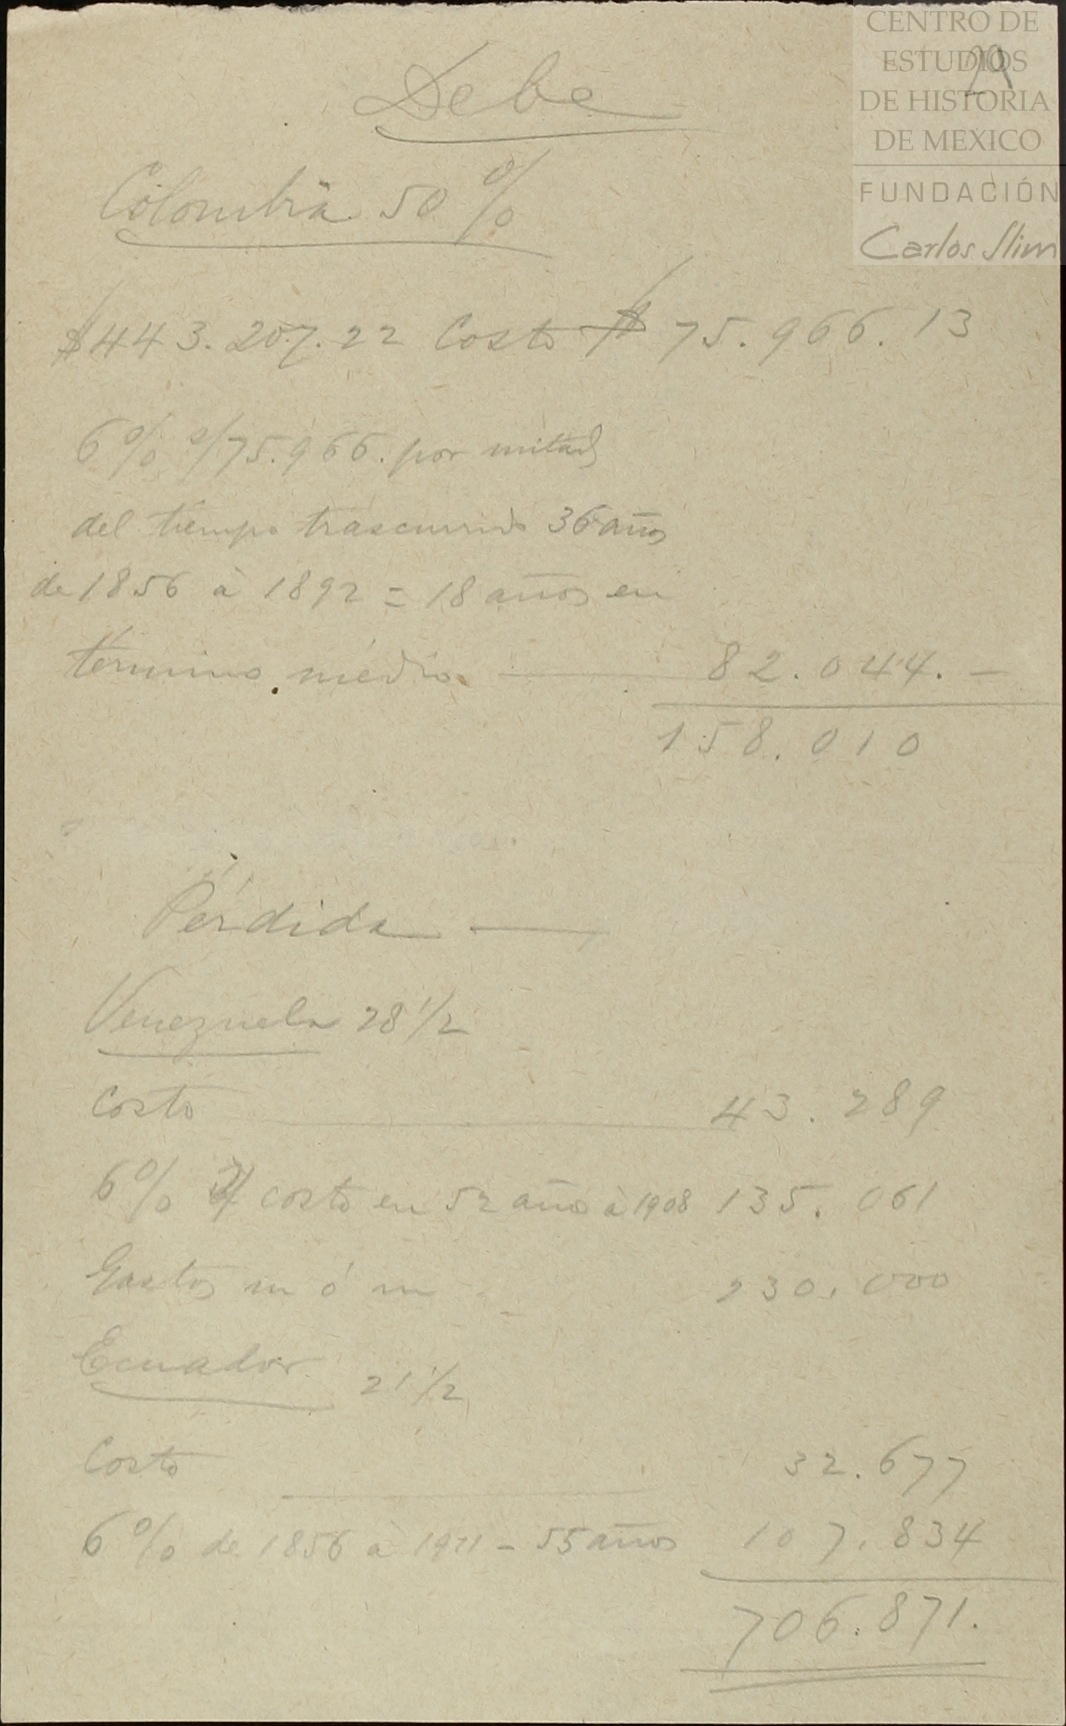 CENTRO DE
ESTUDIOS
DE HISTORIA
DE MEXICO
FUNDACIÓN
Carlos Slim
29
Debe
Colombia 50 %
$443.207.22 Costo $ 75.966.13
6% s/75.966. por mitad
del tiempo trascurrido 36 años
de 1856 à 1892 = 18 años en
término medio 82.044. —
158.010
Pérdida —
Venezuela 28 1/2
Costo 43.289
6% costo en 52 años à 1908 135.061
Gastos m ó m 230.000
Ecuador 21 1/2
Costo 32.677
6% de 1856 à 1911 - 55 años 107.834
706.871.